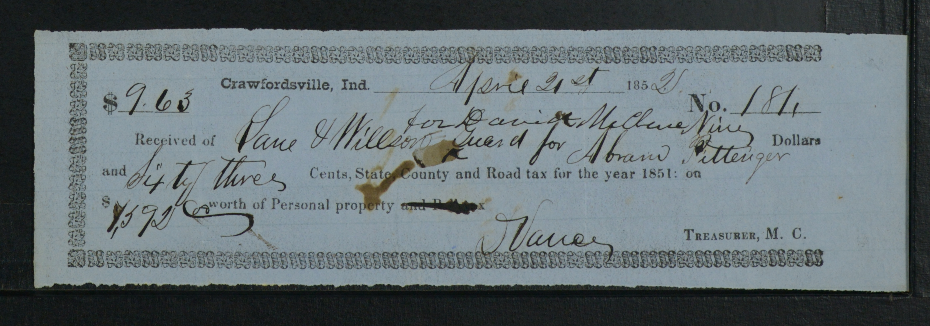 Crawfordsville, Ind. April 21st 1852
$ 9.63 No. 181,
for David McClure Nine
Received of Lane & Willson guard for Abram Pittenger Dollars
and Sixty three Cents, State, County and Road tax for the year 1851: on
$ 1,592 worth of Personal property and Poll tax
Vance TREASURER, M. C.